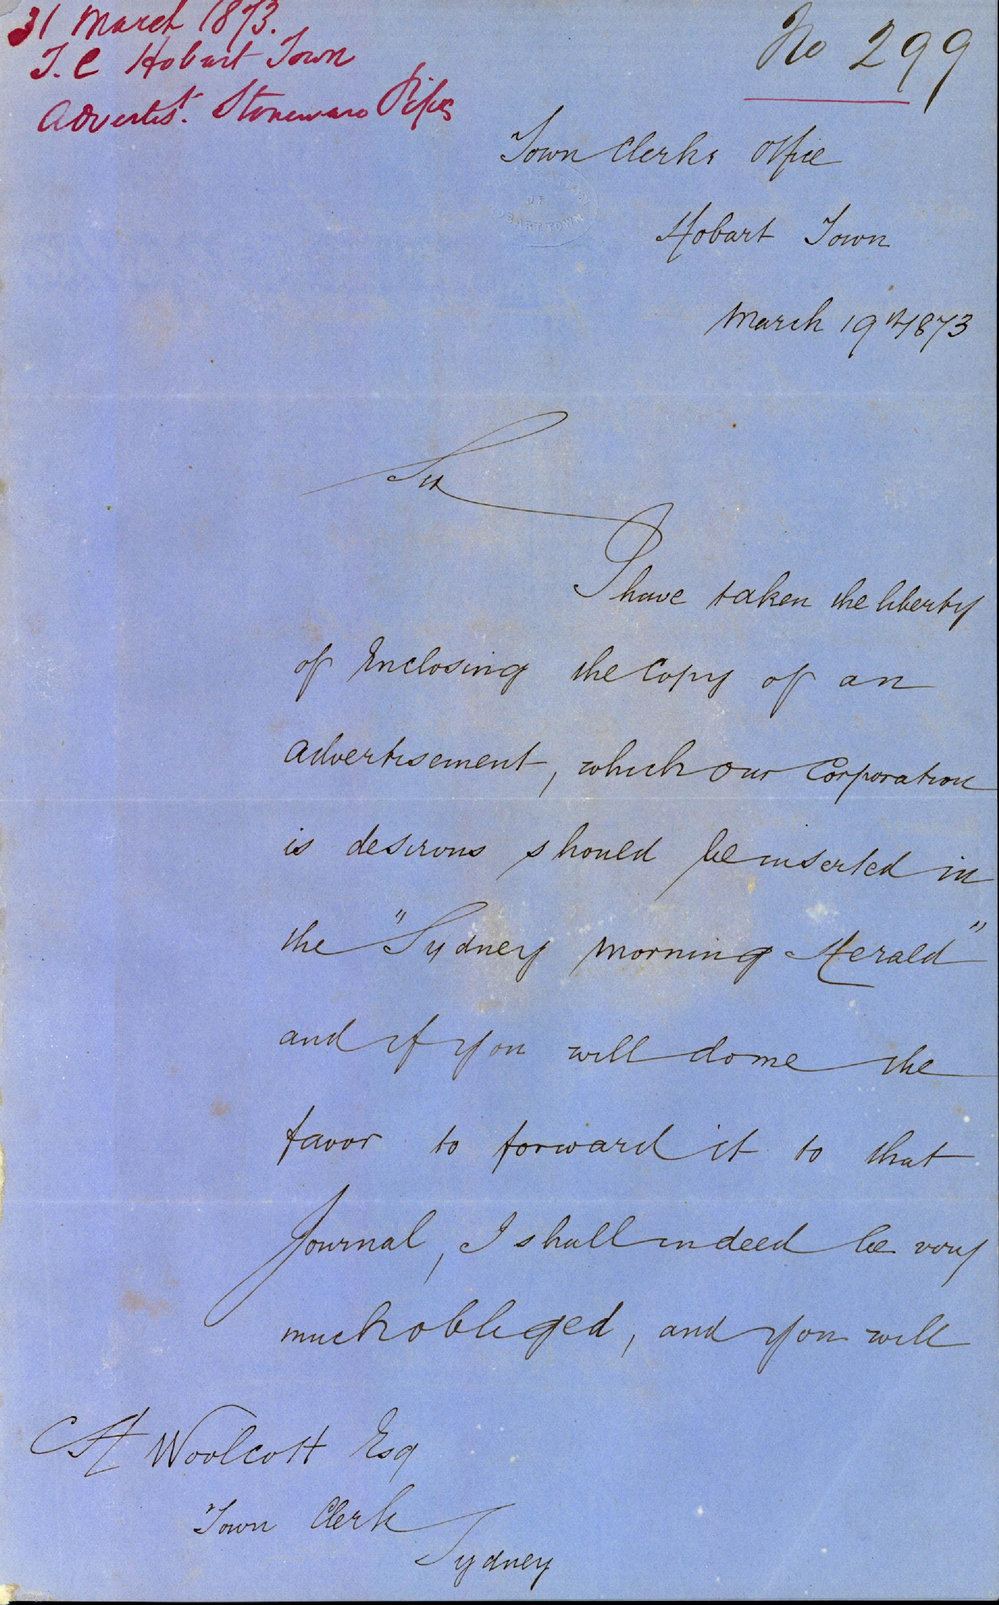 31 March 1873.
T. C Hobart Town
Advertist. Stoneware Pipes
No 299
Town Clerks Office
Hobart Town
March 19th 1873
Sir
I have taken the liberty
of Enclosing the Copy of an
Advertisement, which our Corporation
is desirous should be inserted in
the "Sydney Morning Herald"
and if you will do me the
favor to forward it to that
Journal, I shall indeed be very
much obliged, and you will
Woolcott Esq
Town Clerk
Sydney